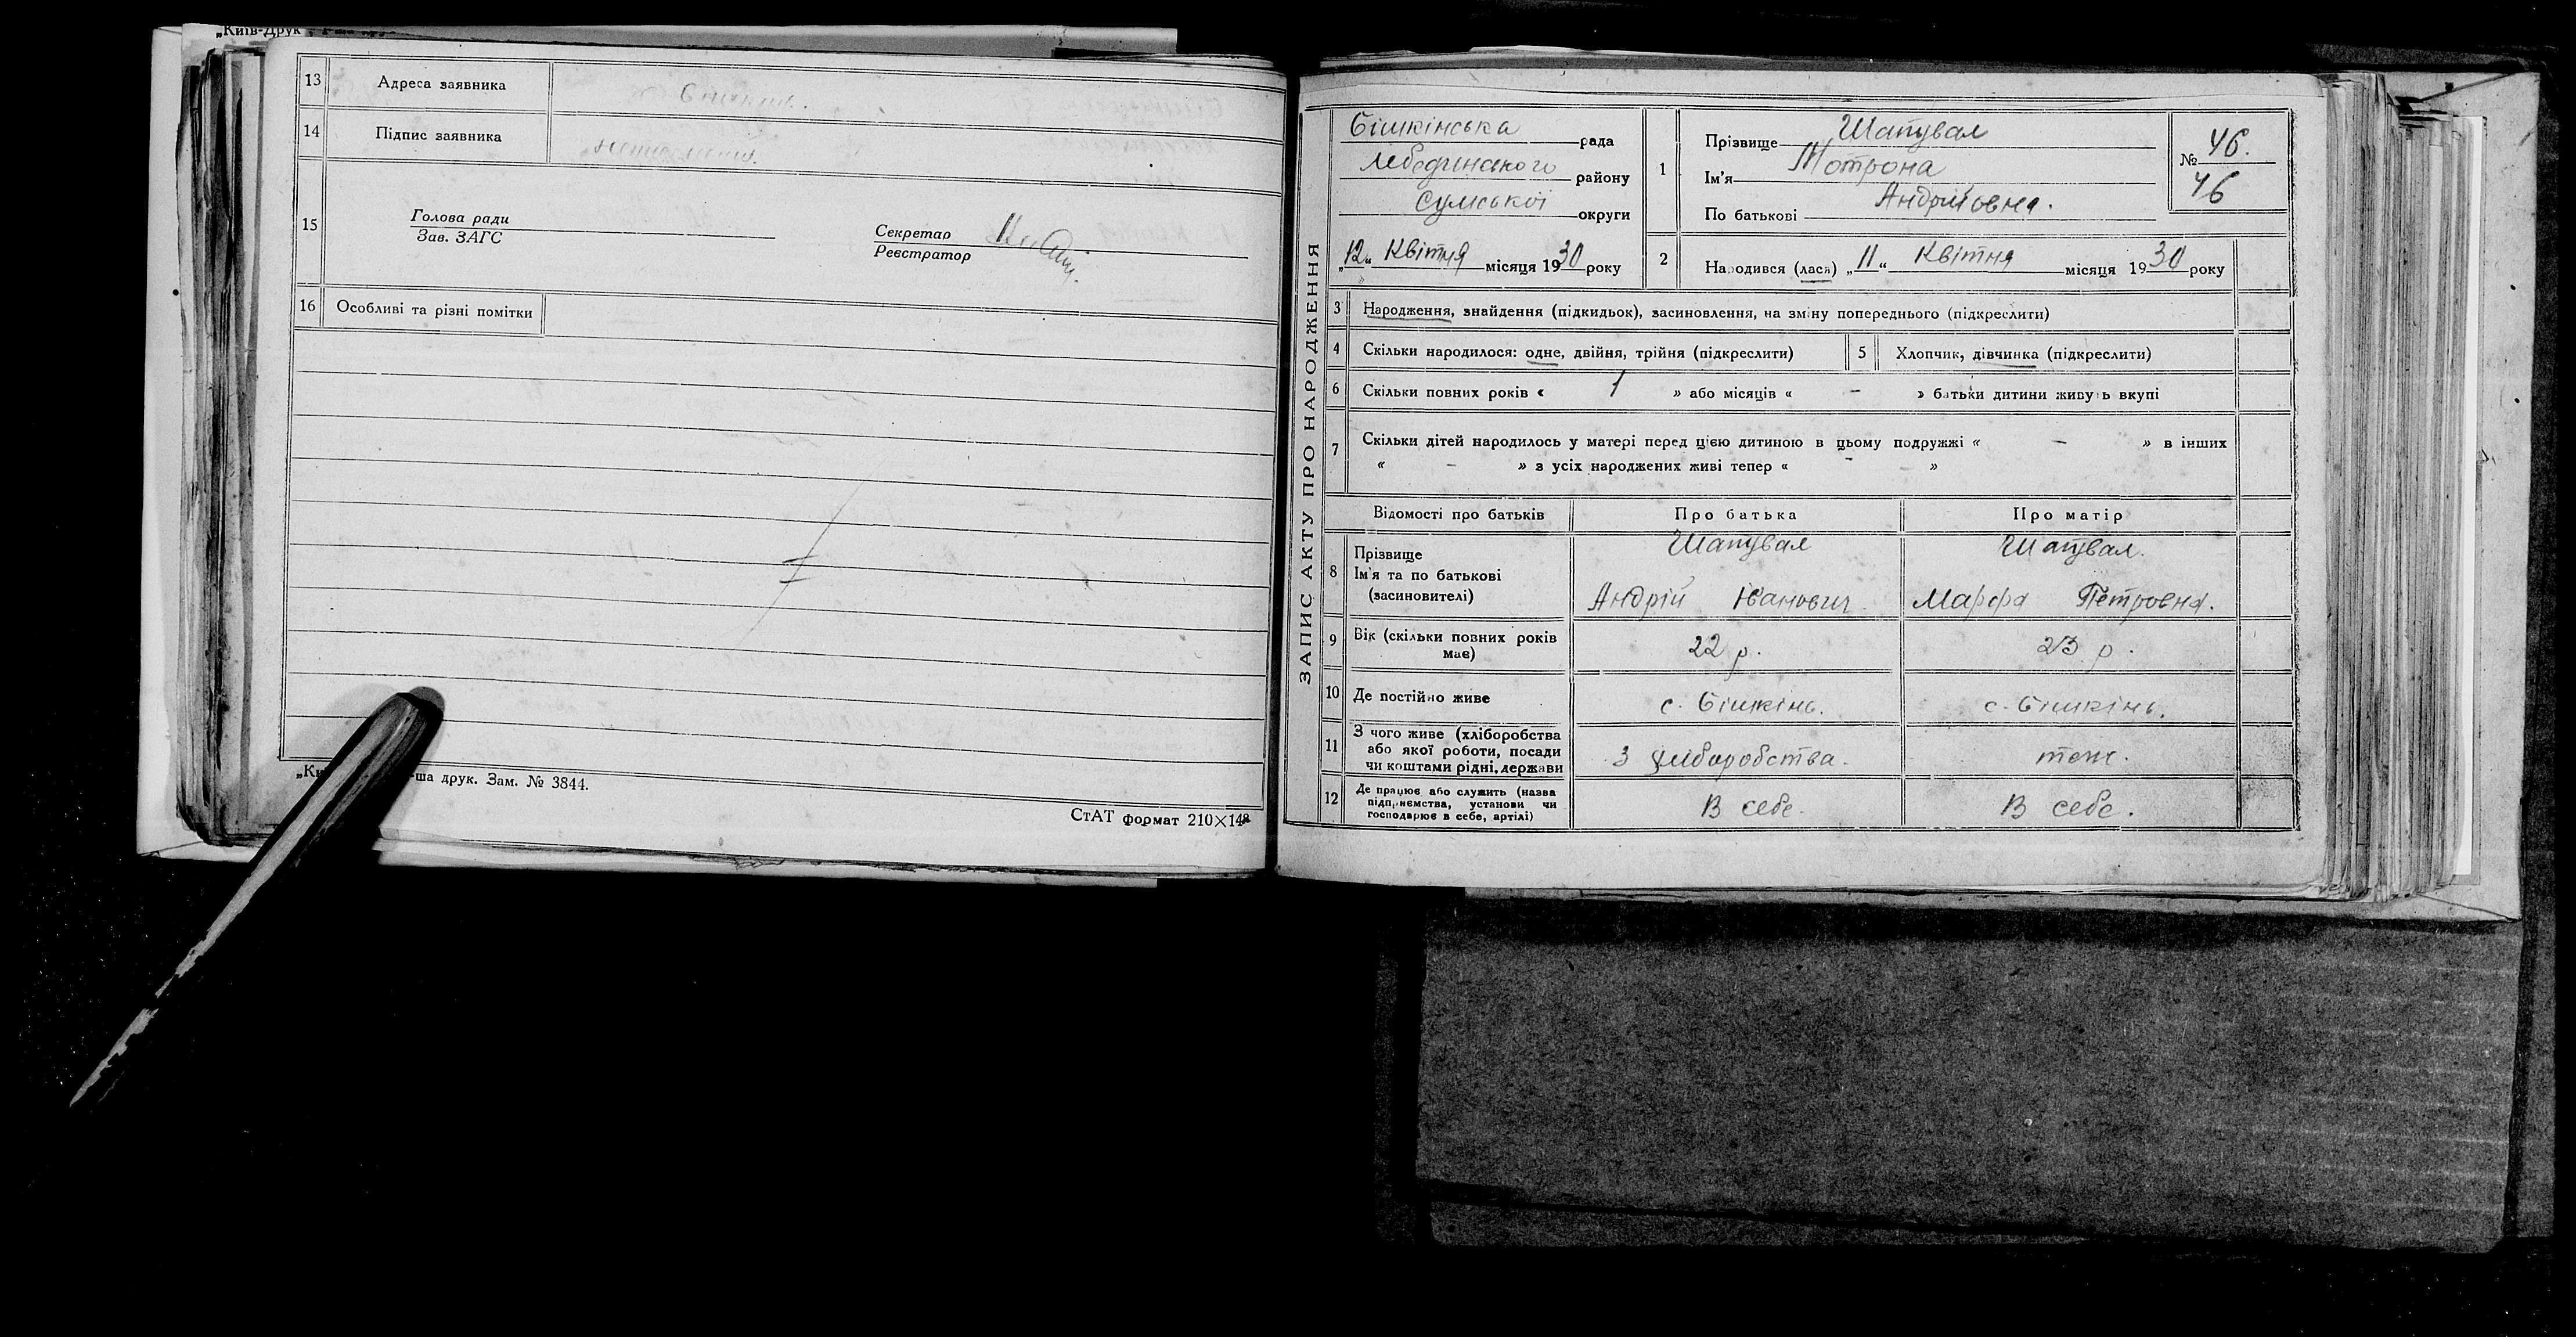 „Київ-Друк
13 Адреса заявника
14 Підпис заявника
15 Голова ради
Зав. ЗАГС
Секретар
Реєстратор
16 Особливі та різні помітки
ша друк. Зам. № 3844.
СтАТ формат 210×148
ЗАПИС АКТУ ПРО НАРОДЖЕННЯ
Бішкінська рада
Лебединського району
Сумської округи
„12“ Квітня місяця 1930 року
1 Прізвище Шапувал
Ім'я Мотрона
По батькові Андрійовна.
№ 46.
46
2 Народився (лася) „11“ Квітня місяця 1930 року
3 Народження, знайдення (підкидьок), засиновлення, на зміну попереднього (підкреслити)
4 Скільки народилося: одне, двійня, трійня (підкреслити) 5 Хлопчик, дівчинка (підкреслити)
6 Скільки повних років « 1 » або місяців « – » батьки дитини живуть вкупі
7 Скільки дітей народилось у матері перед цією дитиною в цьому подружжі « – » в інших
« – » з усіх народжених живі тепер « – »
Відомості про батьків Про батька Про матір
8 Прізвище Шапувал Шапувал.
Ім'я та по батькові Андрій Іванович Марфа Петровна.
(засновителі)
9 Вік (скільки повних років має) 22 р. 23 р.
10 Де постійно живе с. Бішкінь. с. Бішкінь.
11 З чого живе (хліборобства
або якої роботи, посади
чи коштами рідні, держави З хліборобства. теж.
12 Де працює або служить (назва
підприємства, установи чи
господарює в себе, артілі) В себе. В себе.